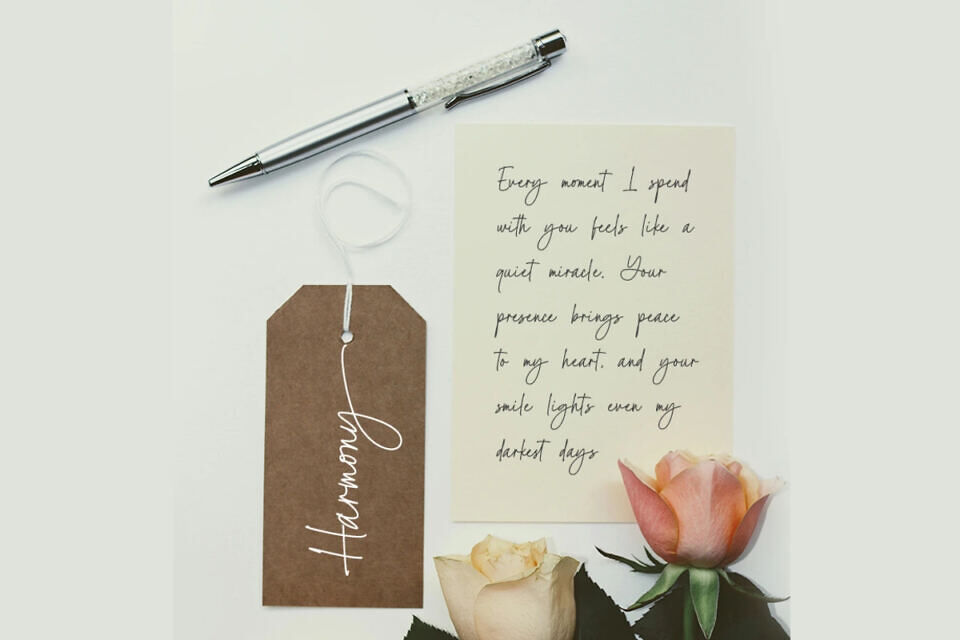 Every moment I spend
with you feels like a
quiet miracle. Your
presence brings peace
to my heart. and your
smile lights even my
darkest days
Harmony